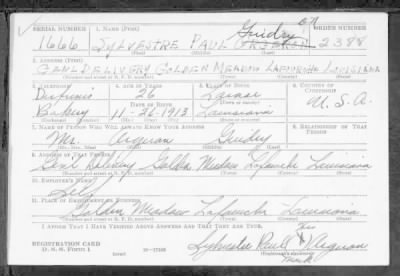 SERIAL NUMBER 1. NAME (Print) ORDER NUMBER
Guidry
1666 SYLVESTRE PAUL 2388
2. ADDRESS (Print)
GENL DELIVERY GOLDEN MEADOW LAFOURCHE LOUISIANA
3. TELEPHONE 4. AGE IN YEARS 5. PLACE OF BIRTH 6. COUNTRY OF CITIZENSHIP
26
DATE OF BIRTH
U.S.A.
Bakery 11-26-1913 Louisiana
7. NAME OF PERSON WHO WILL ALWAYS KNOW YOUR ADDRESS 8. RELATIONSHIP OF THAT PERSON
Mr. Guidry
9. ADDRESS OF THAT PERSON
Genl Delivery Golden Meadow Lafourche Louisiana
10. EMPLOYER'S NAME
Self
11. PLACE OF EMPLOYMENT OR BUSINESS
Golden Meadow Lafourche Louisiana
I AFFIRM THAT I HAVE VERIFIED ABOVE ANSWERS AND THAT THEY ARE TRUE.
His
REGISTRATION CARD
D. S. S. Form 1
Sylvestre Paul X
Mark